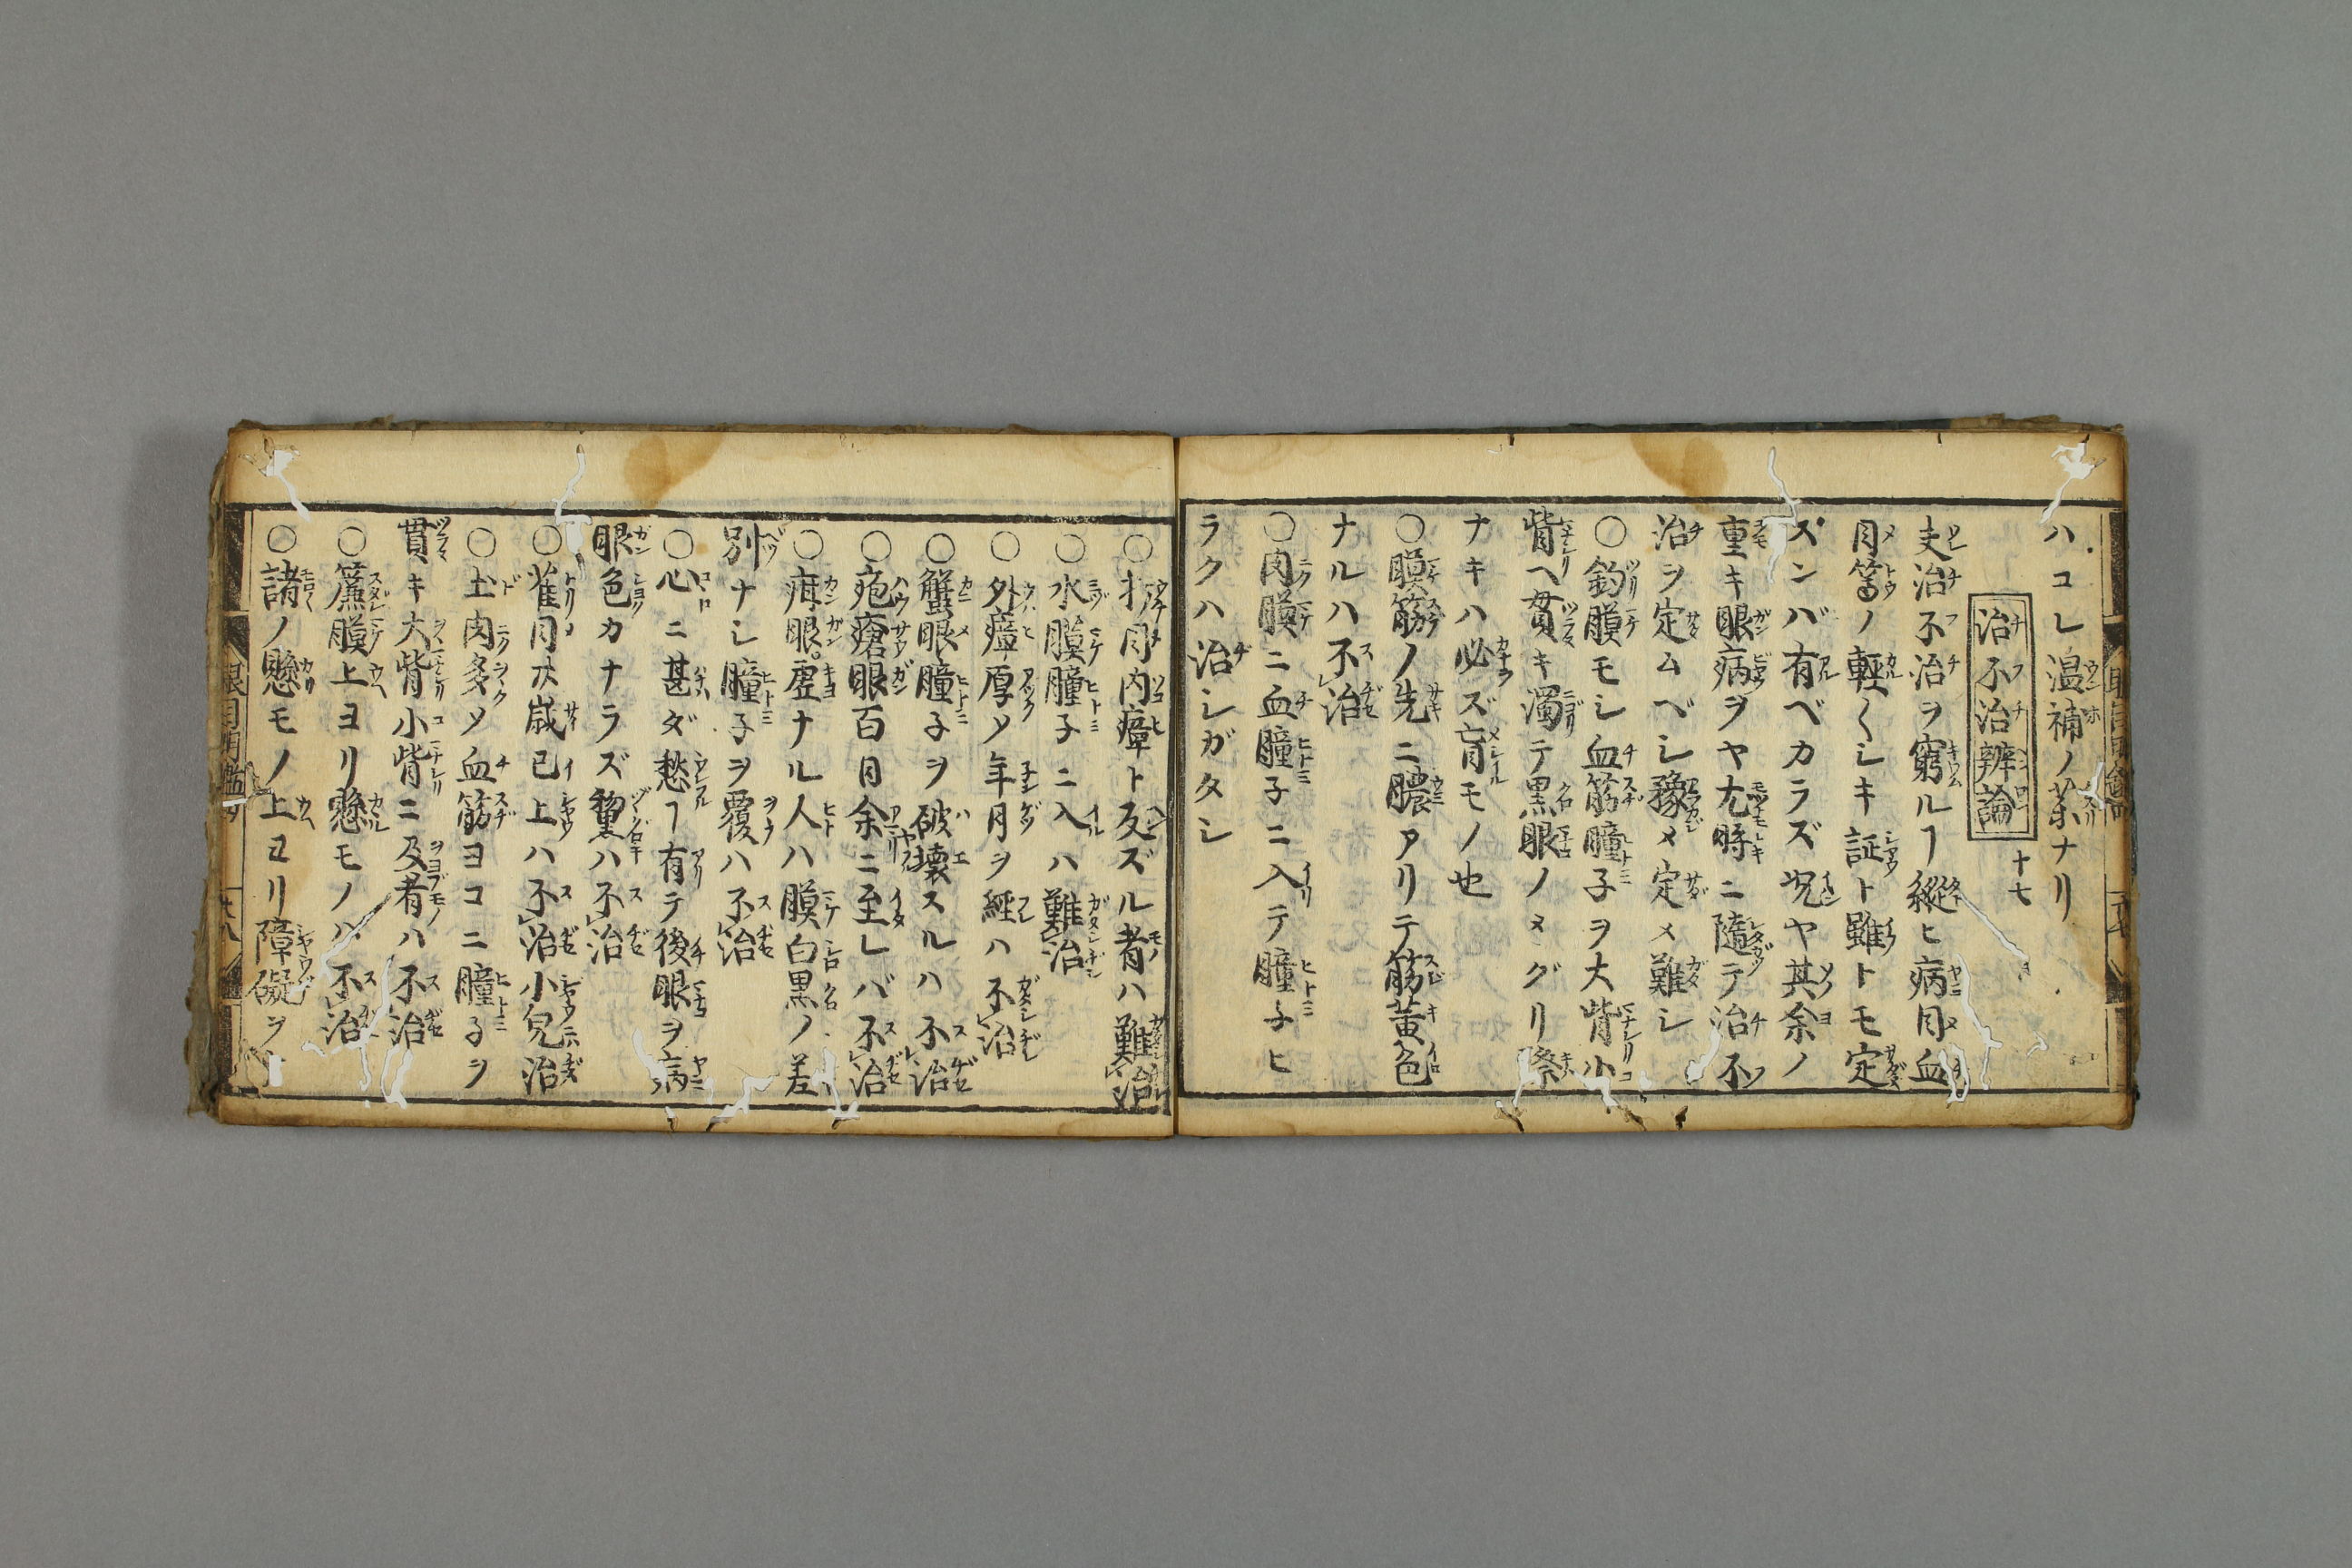 ハコレ温補ノ薬ナリ
治不治辨論 十七
夫治不治ヲ窮ルヿ縦ヒ病目血
目等ノ輕〱シキ証ト雖トモ定
ズンバ有ベカラズ况ヤ其余ノ
重キ眼病ヲヤ尤時ニ隨テ治不
治ヲ定ムベシ豫メ定メ難シ
〇釣膜モシ血筋瞳子ヲ大眥小
眥ヘ貫キ濁テ黒眼ノメグリ際
ナキハ必ズ盲モノ也
〇膜筋ノ先ニ膿アリテ筋黄色
ナルハ不治
〇肉膜ニ血瞳子ニ入テ瞳子ヒ
ラクハ治シガタシ
〇打目内瘴ト反ズル者ハ難治
〇水膜瞳子ニ入ハ難治
〇外瘴厚メ年月ヲ經ハ不治
〇蟹眼瞳子ヲ破壊スルハ不治
〇疱瘡眼百日余ニ至レバ不治
〇疳眼虚ナル人ハ膜白黒ノ差
別ナシ瞳子ヲ覆ハ不治
〇心ニ甚ダ愁ヿ有テ後眼ヲ病
眼色カナラズ黧ハ不治
〇雀目廿歳已上ハ不治小兒治
〇土肉多メ血筋ヨコニ瞳子ヲ
貫キ大眥小眥ニ及者ハ不治
〇簾膜上ヨリ懸モノハ不治
〇諸ノ懸モノ上ヨリ障礙ヲ
眼目明鑑
十八